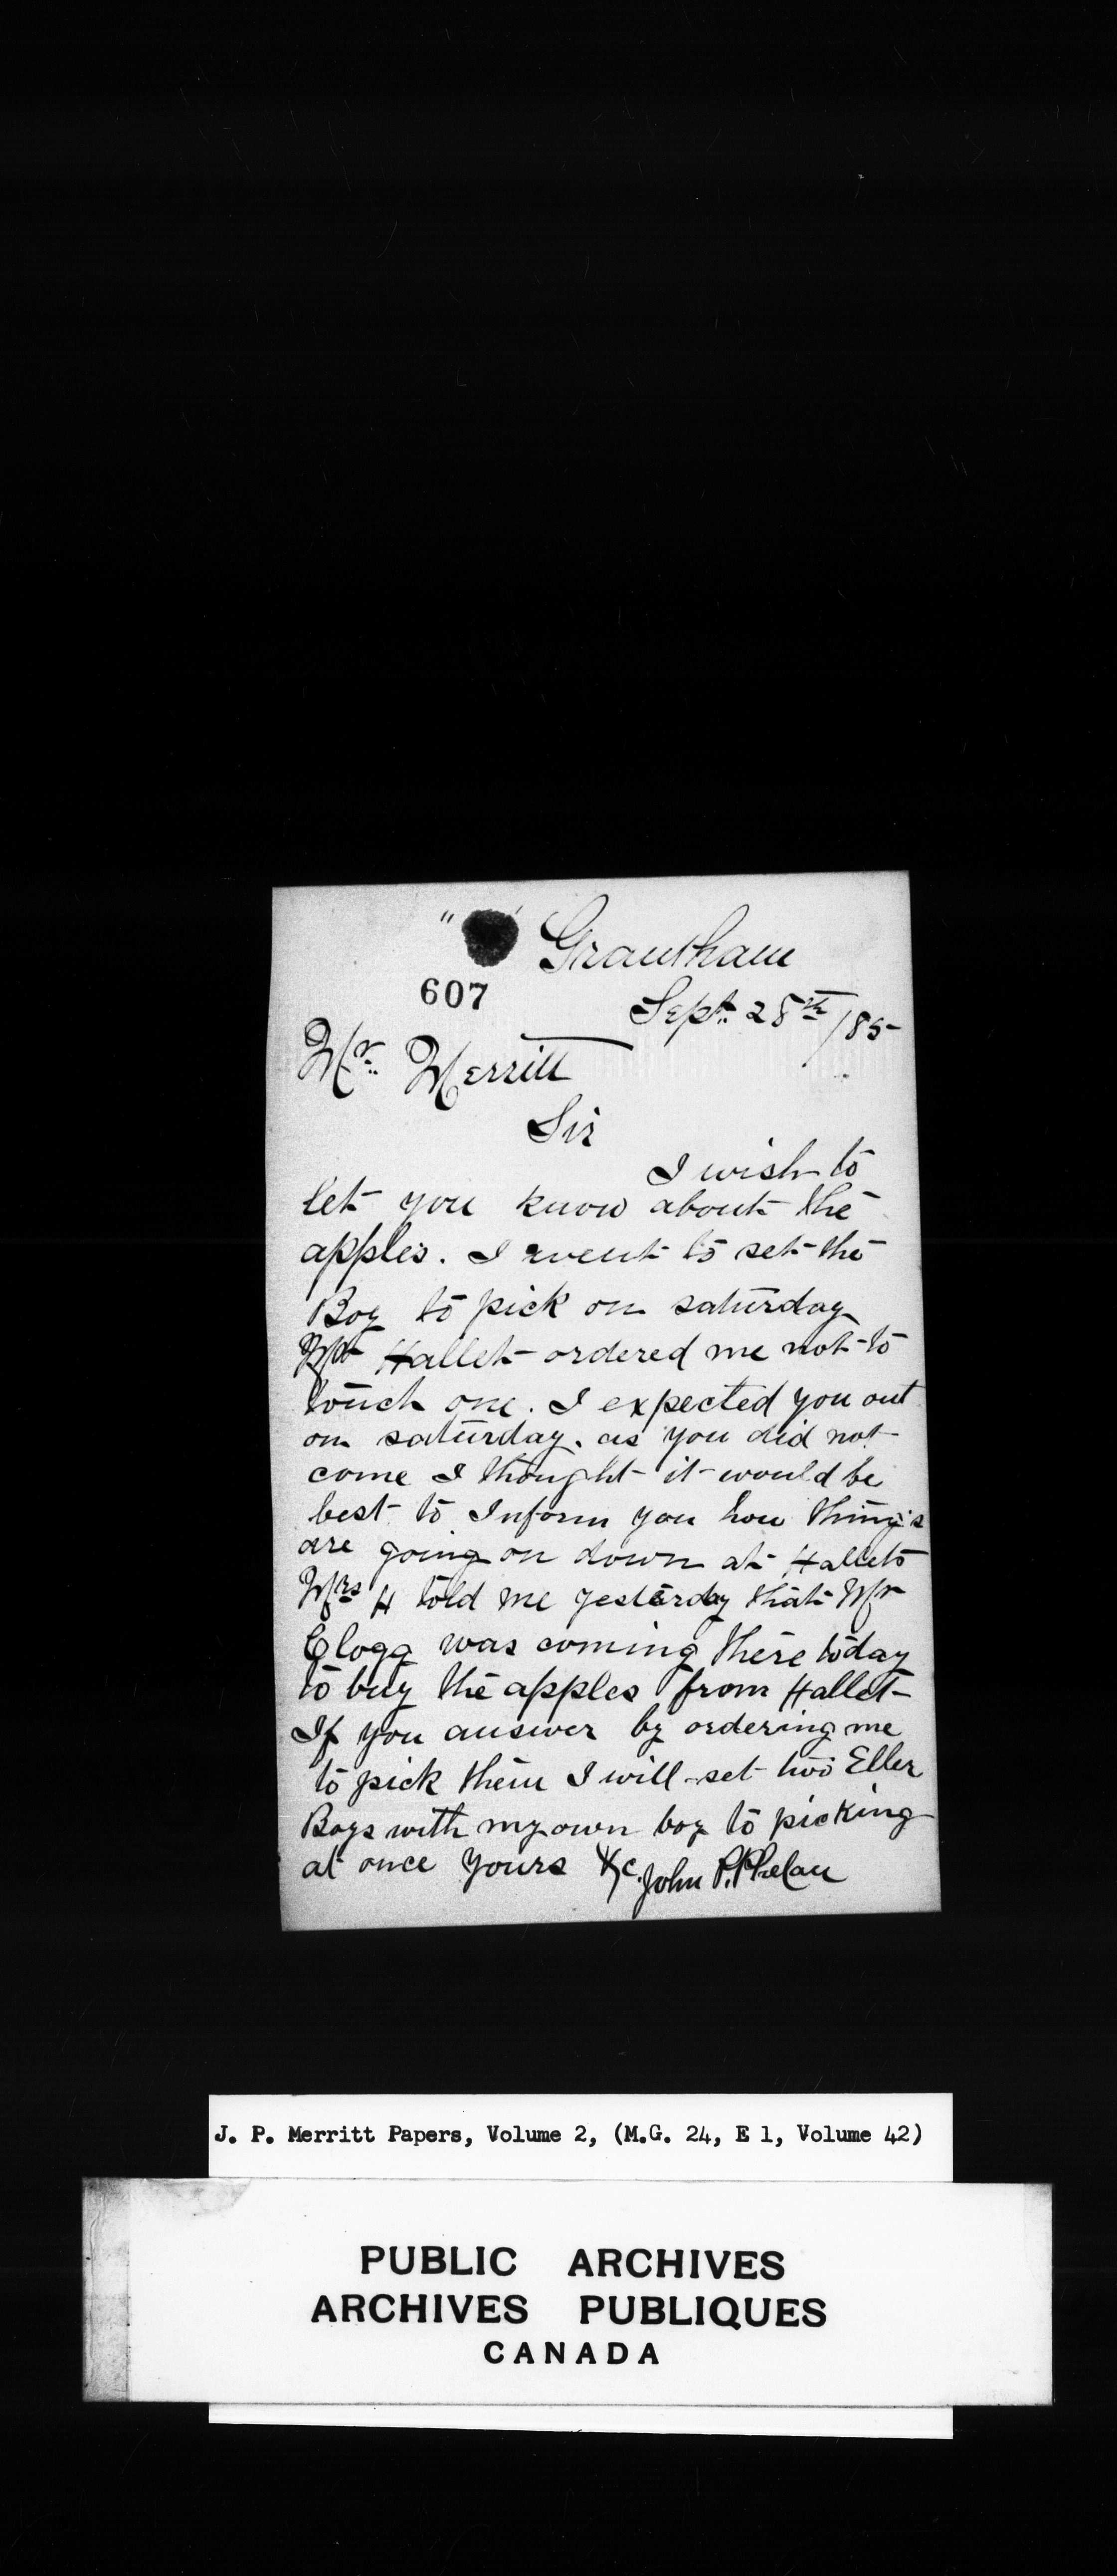 Grantham
607
Sept. 28th /85
Mr. Merritt
Sir
I wish to
let you know about the
apples. I went to set the
Boy to pick on saturday
Mr Hallet ordered me not to
touch one. I expected you out
on saturday. as you did not
come I thought it would be
best to Inform you how things
are going on down at Hallets
Mrs H told me yesterday that Mr
Clogg was coming there today
to buy the apples from Hallet
If you answer by ordering me
to pick them I will set two Eller
Boys with my own boy to picking
at once yours &c. John P. Phelan
J. P. Merritt Papers, Volume 2, (M.G. 24, E 1, Volume 42)
PUBLIC ARCHIVES
ARCHIVES PUBLIQUES
CANADA